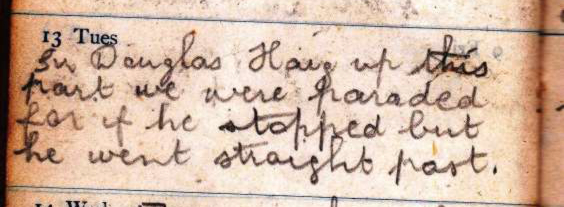 13 Tues
Sir Douglas Haig up this
part we were paraded
for if he stopped but
he went straight past.